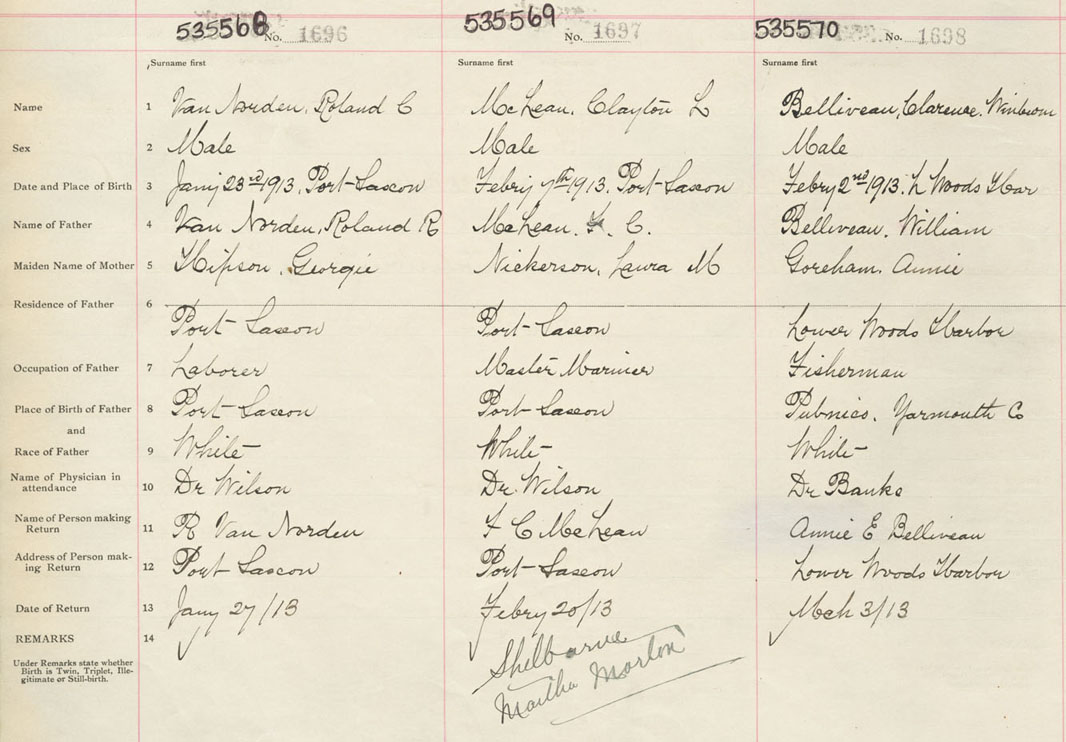 535568 No. 1696 535569 No. 1697 535570 No. 1698
Surname first Surname first Surname first
Name 1 Van Norden, Roland C McLean, Clayton L Belliveau, Clarence
Sex 2 Male Male Male
Date and Place of Birth 3 Jany 23rd 1913, Port Saxon Febry 7th 1913. Port Saxon Febry 2nd 1913. L Woods Hbar
Name of Father 4 Van Norden, Roland R McLean. F. C. Belliveau. William
Maiden Name of Mother 5 Hipson, Georgie Nickerson, Laura M Goreham. Annie
Residence of Father 6
Port Saxon Port Saxon Lower Woods Harbor
Occupation of Father 7 Laborer Master Mariner Fisherman
Place of Birth of Father 8 Port Saxon Port Saxon Pubnico. Yarmouth Co
and
Race of Father 9 White White White
Name of Physician in
attendance 10 Dr Wilson Dr. Wilson Dr Banks
Name of Person making
Return 11 R Van Norden F C McLean Annie E Belliveau
Address of Person mak-
ing Return 12 Port Saxon Port Saxon Lower Woods Harbor
Date of Return 13 Jany 27/13 Febry 20/13 Mch 3/13
REMARKS 14
Under Remarks state whether
Birth is Twin, Triplet, Ille-
gitimate or Still-birth.
Shelburne
Martha Morton